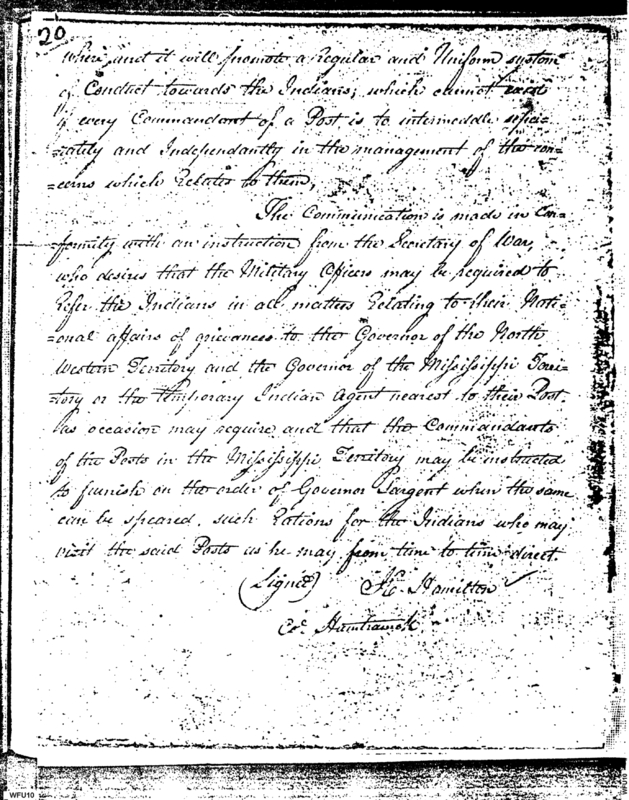 20
where, and it will promote a Regular and Uniform system
of Conduct towards the Indians; which cannot exist
if every Commandant of a Post is to intermeddle
=rately and Independantly in the management of the con=
=cerns which Relates to them,
The Communication is made in Con=
=formity with an instruction from the Secretary of War,
who desires that the Military Officers may be required to
Refer the Indians in all matters Relating to their Nati=
=onal affairs of grievances to the Governor of the North
Western Territory and the Governor of the Mississippi Terri=
=tory or the temporary Indian Agent nearest to their Post.
as occasion may require and that the Commandants
of the Posts in the Mississippi Territory may be instructed
to furnish on the order of Governor Sargent when the same
can be speared, such Rations for the Indians who may
visit the said Posts as he may from time to time direct.
(Signed) Hamilton
Col. Hamtramck
WFU10